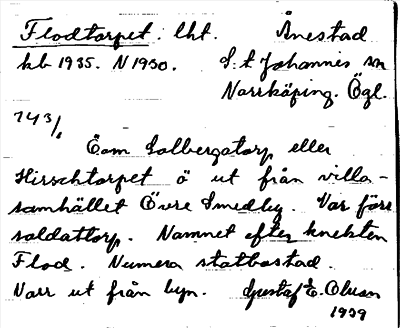 Flodtorpet. lht. Ånestad
kb 1935. N 1930. S:t Johannis sn
Norrköping. Ögl.
743/1
Eom Solbergatorp eller
Hirschtorpet ö ut från villa-
samhället Övre Smedby. Var förr
soldattorp. Namnet efter knekten
Flod. Numera statbostad.
Norr ut från byn. Gustaf E. Olsson
1939